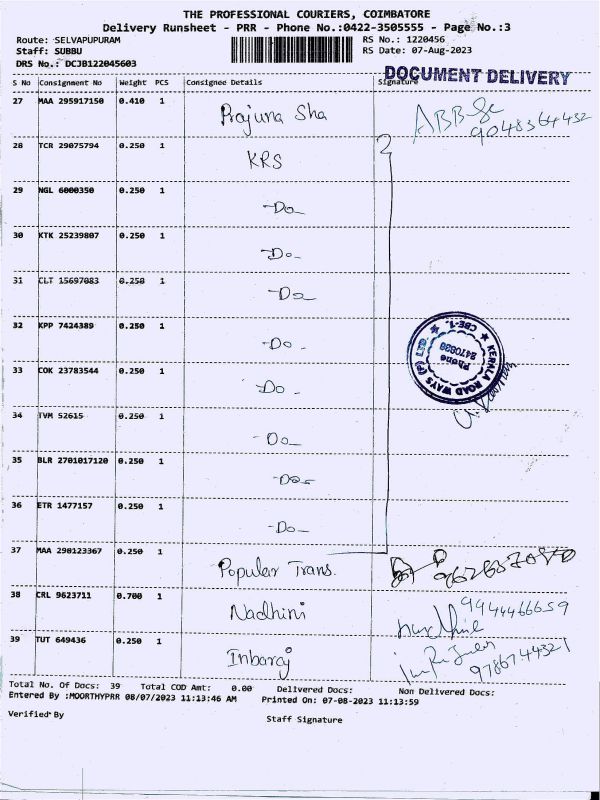 THE PROFESSIONAL COURIERS, COIMBATORE
Delivery Runsheet - PRR - Phone No.:0422-3505555 - Page No.:3
Route: SELVAPUPURAM RS No.: 1220456
Staff: SUBBU RS Date: 07-Aug-2023
DRS No.: DCJB122045603
DOCUMENT DELIVERY
S No Consignment No Weight PCS Consignee Details Signature
27 MAA 295917150 0.410 1 Prajuna Sha 9048364432
28 TCR 29075794 0.250 1 KRS
29 NGL 6000350 0.250 1 -Do-
30 KTK 25239807 0.250 1 -Do-
31 CLT 15697083 0.250 1 -Do-
32 KPP 7424389 0.250 1 -Do-
33 COK 23783544 0.250 1 -Do-
34 TVM 52615 0.250 1 -Do-
35 BLR 2701017120 0.250 1 -Do-
36 ETR 1477157 0.250 1 -Do-
KERALA ROAD WAYS (P) CBE-1.
Phone
2470938
37 MAA 290123367 0.250 1 Popular Trans.
38 CRL 9623711 0.700 1 Nadhini 9944466659
39 TUT 649436 0.250 1 Inbaraj 9786744321
Total No. Of Docs: 39 Total COD Amt: 0.00 Delivered Docs: Non Delivered Docs:
Entered By :MOORTHYPRR 08/07/2023 11:13:46 AM Printed On: 07-08-2023 11:13:59
Verified By
Staff Signature